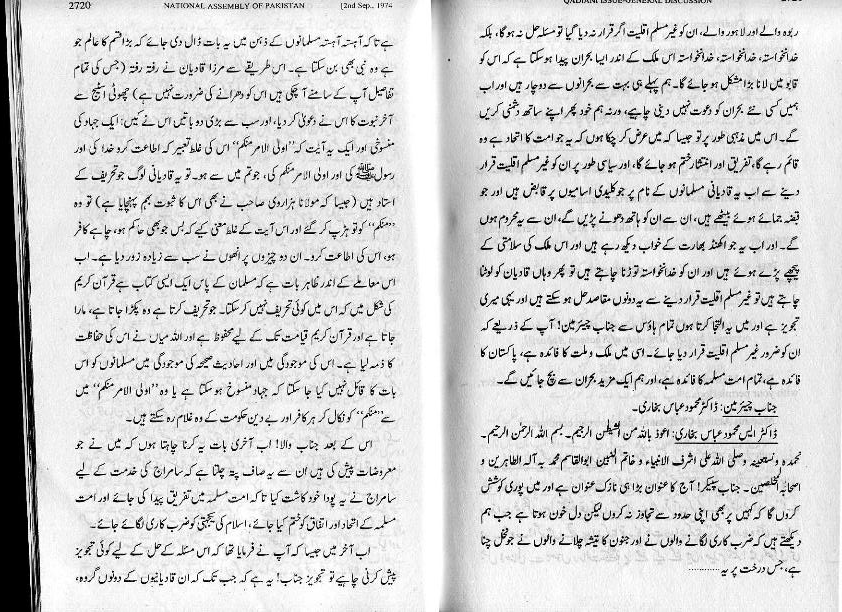 2720 NATIONAL ASSEMBLY OF PAKISTAN [2nd Sep., 1974
ہے تاکہ آہستہ آہستہ مسلمانوں کے ذہن میں یہ بات ڈال دی جائے کہ بڑا قسم کا عالم جو
ہے وہ نبی بھی بن سکتا ہے۔ اس طریقے سے مرزا قادیان نے رفتہ رفتہ (جس کی تمام
تفاصیل آپ کے سامنے آ چکی ہیں اس کو دھرانے کی ضرورت نہیں ہے) چھوٹی اسٹیج سے
آخر نبوت کا اس نے دعویٰ کر دیا، اور سب سے بڑی دو باتیں اس نے کیں: ایک جہاد کی
منسوخی اور ایک یہ آیت کہ "اولی الامر منکم" اس کی غلط تعبیر کہ اطاعت کرو خدا کی اور
رسول ﷺ کی اور اولی الامر منکم کی، جو تم میں سے ہو۔ تو یہ قادیانی لوگ جو تحریف کے
استاد ہیں (جیسا کہ مولانا ہزاروی صاحب نے بھی اس کا ثبوت بہم پہنچایا ہے) تو وہ
"منکم" کو تو ہڑپ کر گئے اور اس آیت کے غلط معنی کیے کہ بس جو بھی حاکم ہو، چاہے کافر
ہو، اس کی اطاعت کرو۔ ان دو چیزوں پر انھوں نے سب سے زیادہ زور دیا ہے۔ اب
اس معاملے کے اندر ظاہر بات ہے کہ مسلمان کے پاس ایک ایسی کتاب ہے قرآن کریم
کی شکل میں کہ اس میں کوئی تحریف نہیں کر سکتا۔ جو تحریف کرتا ہے وہ پکڑا جاتا ہے، مارا
جاتا ہے اور قرآن کریم قیامت تک کے لیے محفوظ ہے اور اللہ میاں نے اس کی حفاظت
کا ذمہ لیا ہے۔ اس کی موجودگی میں اور احادیث صحیحہ کی موجودگی میں مسلمانوں کو اس
بات کا قائل نہیں کیا جا سکتا کہ جہاد منسوخ ہو سکتا ہے یا وہ "اولی الامر منکم" میں
سے "منکم" کو نکال کر ہر کافر اور بے دین حکومت کے وہ غلام رہ سکتے ہیں۔
اس کے بعد جناب والا! اب آخری بات یہ کرنا چاہتا ہوں کہ میں نے جو
معروضات پیش کی ہیں ان سے یہ صاف پتہ چلتا ہے کہ سامراج کی خدمت کے لیے
سامراج نے یہ پودا خود کاشت کیا تا کہ امت مسلمہ میں تفریق پیدا کی جائے اور امت
مسلمہ کے اتحاد اور اتفاق کو ختم کیا جائے، اسلام کی یکجہتی کو ضرب کاری لگائے جائے۔
اب آخر میں جیسا کہ آپ نے فرمایا تھا کہ اس مسئلہ کے حل کے لیے کوئی تجویز
پیش کرنی چاہیے تو تجویز جناب! یہ ہے کہ جب تک کہ ان قادیانیوں کے دونوں گروہ،
QADIANI ISSUE-GENERAL DISCUSSION
ربوہ والے اور لاہور والے، ان کو غیر مسلم اقلیت اگر قرار نہ دیا گیا تو مسئلہ حل نہ ہوگا، بلکہ
خدانخواستہ، خدانخواستہ، خدانخواستہ اس ملک کے اندر ایسا بحران پیدا ہو سکتا ہے کہ اس کو
قابو میں لانا بڑا مشکل ہو جائے گا۔ ہم پہلے ہی بہت سے بحرانوں سے دوچار ہیں اور اب
ہمیں کسی نئے بحران کو دعوت نہیں دینی چاہیے، ورنہ ہم خود پھر اپنے ساتھ دشمنی کریں
گے۔ اس میں مذہبی طور پر تو جیسا کہ میں عرض کر چکا ہوں کہ یہ جو امت کا اتحاد ہے وہ
قائم رہے گا، تفریق اور انتشار ختم ہو جائے گا، اور سیاسی طور پر ان کو غیر مسلم اقلیت قرار
دینے سے اب یہ قادیانی مسلمانوں کے نام پر جو کلیدی اسامیوں پر قابض ہیں اور جو
قبضہ جمائے ہوئے بیٹھے ہیں، ان سے ان کو ہاتھ دھونے پڑیں گے، ان سے یہ محروم ہوں
گے۔ اور اب یہ جو اکھنڈ بھارت کے خواب دیکھ رہے ہیں اور اس ملک کی سلامتی کے
پیچھے پڑے ہوئے ہیں اور ان کو خدانخواستہ توڑنا چاہتے ہیں تو پھر وہاں قادیان کو لوٹنا
چاہتے ہیں تو غیر مسلم اقلیت قرار دینے سے یہ دونوں مقاصد حل ہو سکتے ہیں اور یہی میری
تجویز ہے اور میں یہ التجا کرتا ہوں تمام ہاؤس سے جناب چیئرمین! آپ کے ذریعے کہ
ان کو ضرور غیر مسلم اقلیت قرار دیا جائے۔ اسی میں ملک و ملت کا فائدہ ہے، پاکستان کا
فائدہ ہے، تمام امت مسلمہ کا فائدہ ہے، اور ہم ایک مزید بحران سے بچ جائیں گے۔
جناب چیئرمین: ڈاکٹر محمود عباس بخاری۔
ڈاکٹر ایس محمود عباس بخاری: اعوذ باللہ من الشیطٰن الرجیم۔ بسم اللہ الرحمٰن الرحیم۔
نحمدہ و نستعینہ و صلی اللہ علیٰ اشرف الانبیاء و خاتم النبیین ابوالقاسم محمد بہ آلہ الطاہرین و
اصحابہ المخلصین۔ جناب سپیکر! آج کا عنوان بڑا ہی نازک عنوان ہے اور میں پوری کوشش
کروں گا کہ کہیں پر بھی اپنی حدود سے تجاوز نہ کروں لیکن دل خون ہوتا ہے جب ہم
دیکھتے ہیں کہ ضرب کاری لگانے والوں نے اور جنون کا تیشہ چلانے والوں نے جو نخل چنا
ہے، جس درخت پر یہ ............